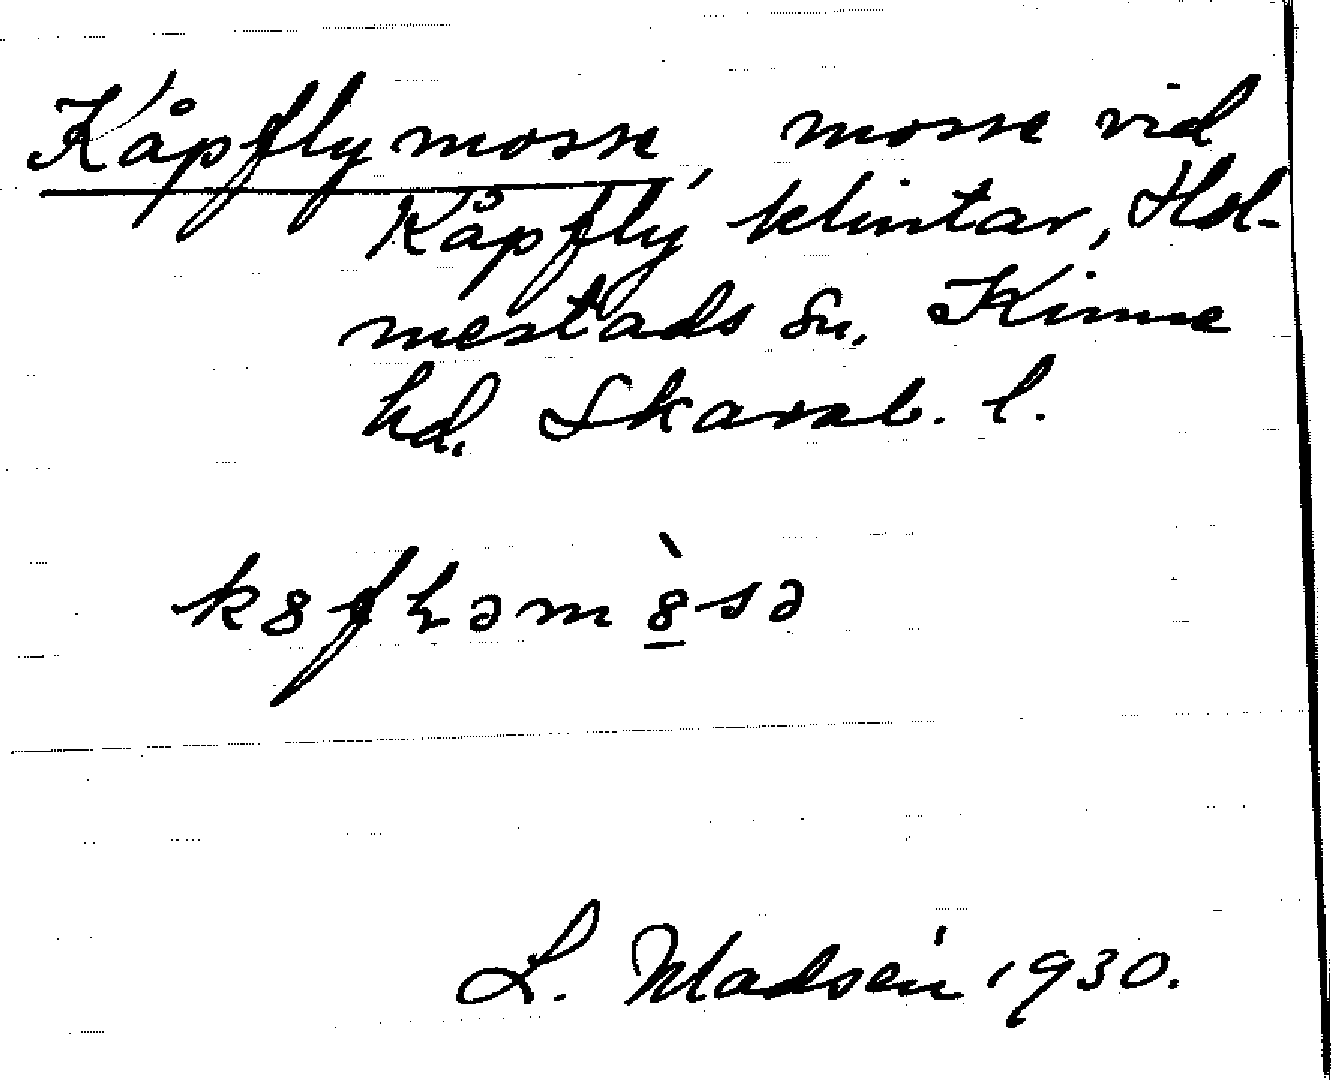 Kåpflymosse, mosse vid
Kåpfly klintar, Hol-
mestads sn. Kinne
hd. Skarab. l.
L. Madsén 1930.